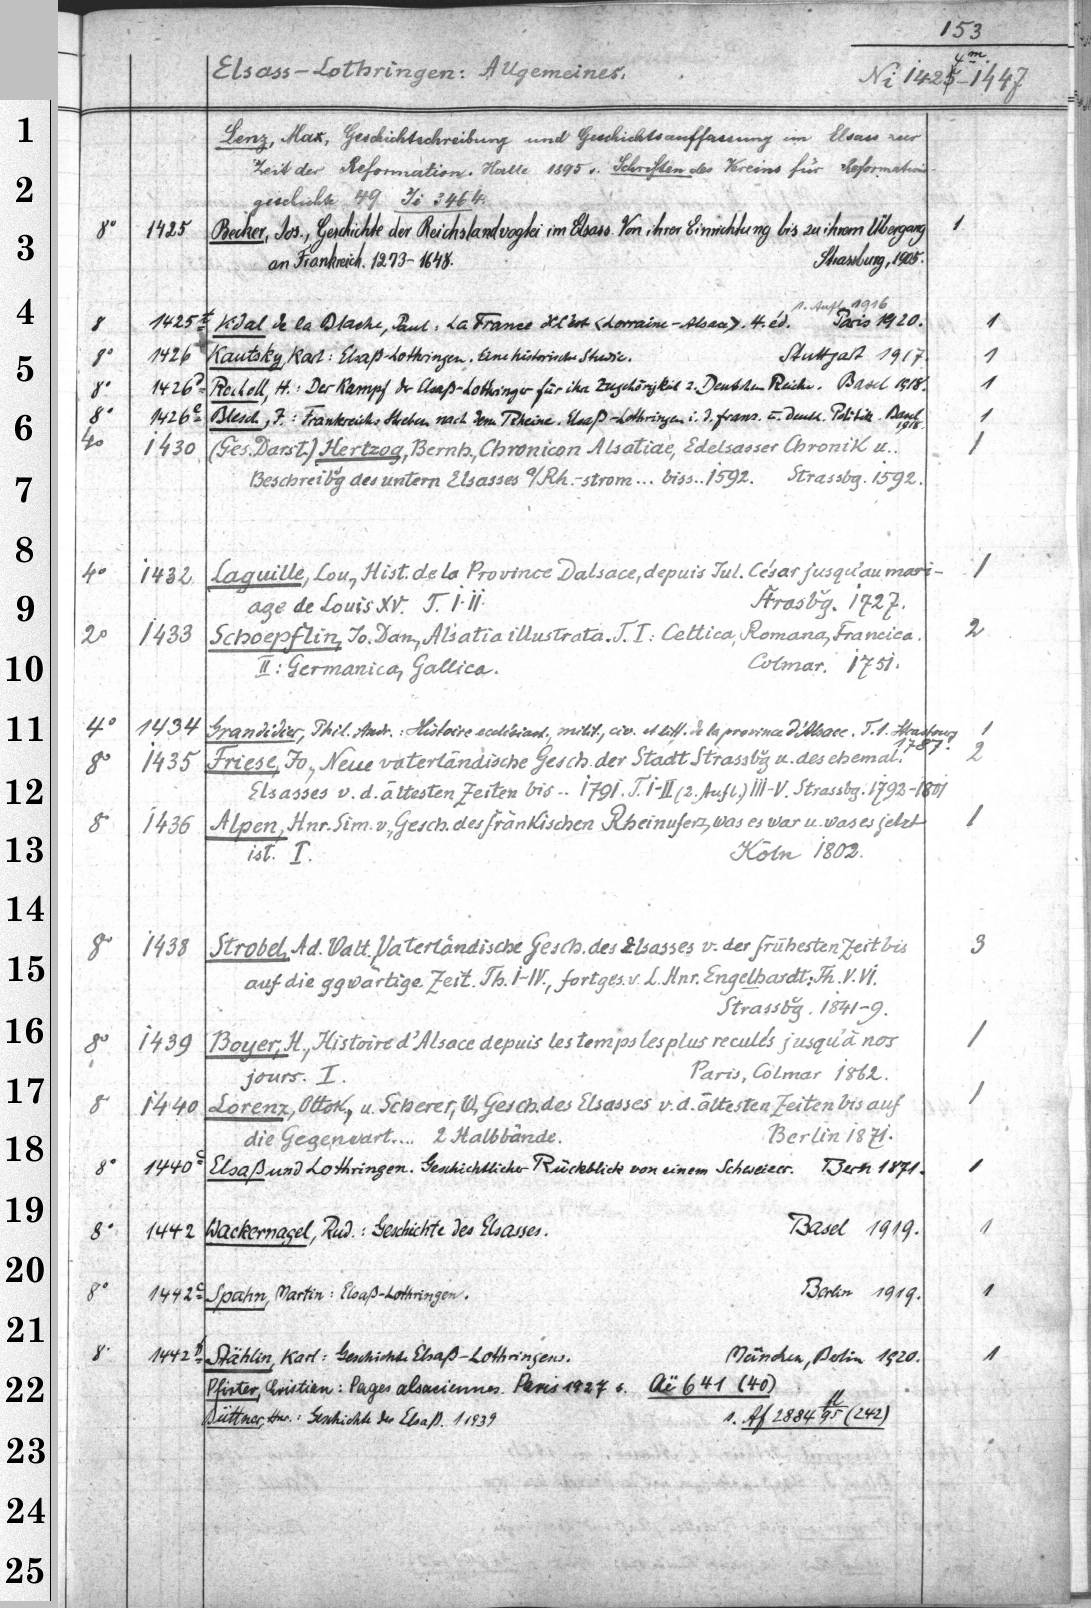 153
Elsass-Lothringen: Allgemeines. Ni 1425-1447
4m
1
Lenz, Max, Geschichtschreibung und Geschichtsauffassung im Elsass zur
Zeit der Reformation. Halle 1895 s. Schriften des Vereins für Reformations-
2
geschichte 49 Ii 3464.
8° 1425 Becker, Jos., Geschichte der Reichslandvogtei im Elsass. Von ihrer Einrichtung bis zu ihrem Übergang 1
3
an Frankreich. 1273-1648. Strassburg, 1905.
1. Aufl. 1916
4
8 1425 Vidal de la Blache, Paul: La France de l'Est <Lorraine-Alsace>. 4. éd. Paris 1920. 1
8° 1426 Kautsky, Karl: Elsaß-Lothringen. Eine historische Studie. Stuttgart 1917. 1
5
8° 1426b Rocholl, H.: Der Kampf der Elsaß-Lothringer für ihre Zugehörigkeit z. Deutschen Reiche. Basel 1918. 1
8° 1426c Blesch, J.: Frankreichs Streben nach dem Rheine. Elsaß-Lothringen i. d. franz. u. deutsch. Politik. Basel 1918. 1
6
4° 1430 (Ges. Darst.) Hertzog, Bernh., Chronicon Alsatiae, Edelsasser Chronik u.. 1
7
Beschreibg des untern Elsasses a/Rh.-strom... biss.. 1592. Strassbg. 1592.
8
4° 1432 Laguille, Lou, Hist. de la Province Dalsace, depuis Jul. César jusqu'au mari- 1
9
age de Louis XV. T. I-II. Strasbg. 1727.
2° 1433 Schoepflin, Jo. Dan., Alsatia illustrata. T. I: Celtica, Romana, Francica. 2
10
II: Germanica, Gallica. Colmar. 1751.
11
4° 1434 Grandidier, Phil. Andr.: Histoire ecclésiast., milit., civ. et litt. de la province d'Alsace. T. 1. Strasbourg 1787. 1
8° 1435 Friese, Jo., Neue vaterländische Gesch. der Stadt Strassbg u. des ehemal. 2
12
Elsasses v. d. ältesten Zeiten bis.. 1791. T. I-II (2. Aufl.) III-V. Strassbg. 1792-1801
8° 1436 Alpen, Hnr. Sim. v., Gesch. des fränkischen Rheinufers, was es war u. was es jetzt 1
13
ist. I. Köln 1802.
14
8° 1438 Strobel, Ad. Walt. Vaterländische Gesch. des Elsasses v. der frühesten Zeit bis 3
15
auf die ggwärtige Zeit. Th. I-IV., fortges. v. L. Hnr. Engelhardt: Th. V. VI.
Strassbg. 1841-9.
16
8° 1439 Boyer, H., Histoire d'Alsace depuis les temps les plus reculés jusqu'à nos 1
17
jours. I. Paris, Colmar 1862.
8° 1440 Lorenz, Ottok., u. Scherer, W., Gesch. des Elsasses v. d. ältesten Zeiten bis auf 1
18
die Gegenwart.... 2 Halbbände. Berlin 1871.
8° 1440c Elsaß und Lothringen. Geschichtlicher Rückblick von einem Schweizer. Bern 1871. 1
19
8° 1442 Wackernagel, Rud.: Geschichte des Elsasses. Basel 1919. 1
20
8° 1442c Spahn, Martin: Elsaß-Lothringen. Berlin 1919. 1
21
8° 1442 Stählin, Karl: Geschichte Elsaß-Lothringens. München, Berlin 1920. 1
22
Pfister, Christian: Pages alsaciennes. Paris 1927 s. Aë 641 (40)
Büttner, Hnr.: Geschichte des Elsaß. 1 1939 s. Af 2884 (242)
23
24
25